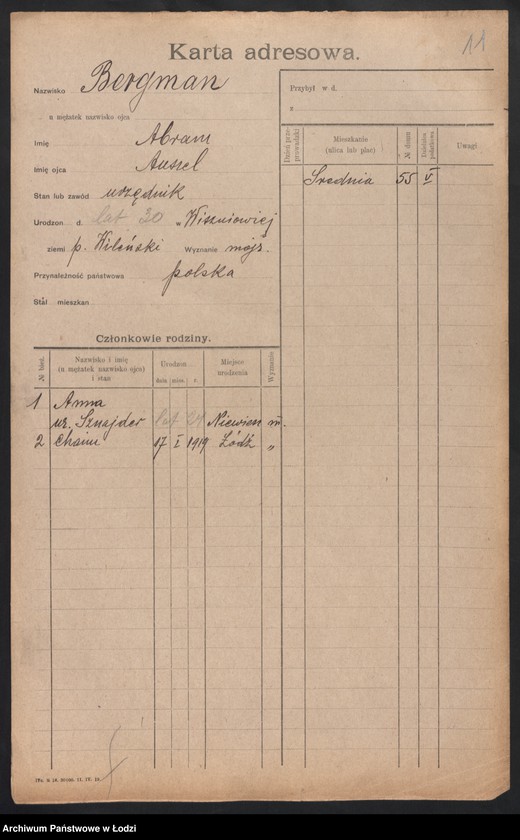 11
Karta adresowa.
Nazwisko Bergman
u mężatek nazwisko ojca
Imię Abram
Imię ojca Auszel
Stan lub zawód urzędnik
Urodzon d. lat 30 w Wiszniowiej
ziemi p. Wileński Wyznanie mojż.
Przynależność państwowa polska
Stał. mieszkan.
Przybył w d.
z
Dzień prze-prowadzki
Mieszkanie
(ulica lub plac)
№ domu
Dzielnica podatkowa
Uwagi
Średnia 55 V
Członkowie rodziny.
№ bież.
Nazwisko i imię
(u mężatek nazwisko ojca)
i stan
Urodzon
dnia mies. r.
Miejsce
urodzenia
Wyznanie
1 Anna
ur. Sznajder lat Niewien m.
2 Chaim 17 I 1919 Łódź "
Archiwum Państwowe w Łodzi